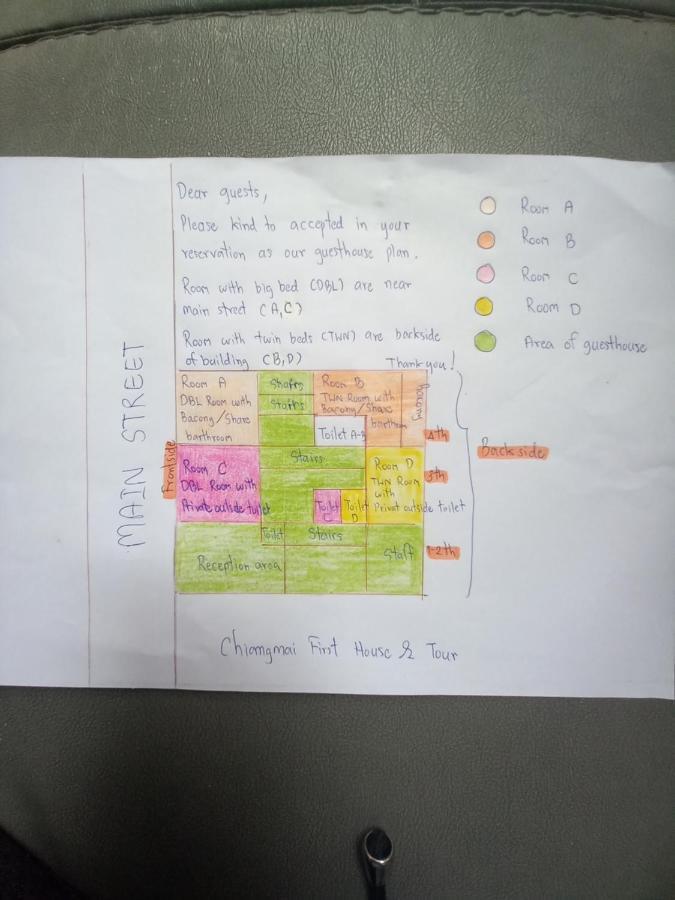 Dear guests,
Please kind to accepted in your
reservation as our guesthouse plan.
Room with big bed (DBL) are near
main street (A,C)
Room with twin beds (TWN) are backside
of building (B,D)
Thank you!
Room A
Room B
Room C
Room D
Area of guesthouse
MAIN STREET
Frontside
Room A
DBL Room with
Bacony/Share
barthroom
Stairs
Room B
TWN Room with
Bacony/Share
barthrom
Bacony
Toilet A-B
4th
Back side
Room C
DBL Room with
Private outside toilet
Stairs
Toilet
C
Toilet
D
Room D
TWN Room
with
Privat outside toilet
3th
Toilet
Stairs
Reception area
Staff
1-2th
Chiangmai First House & Tour